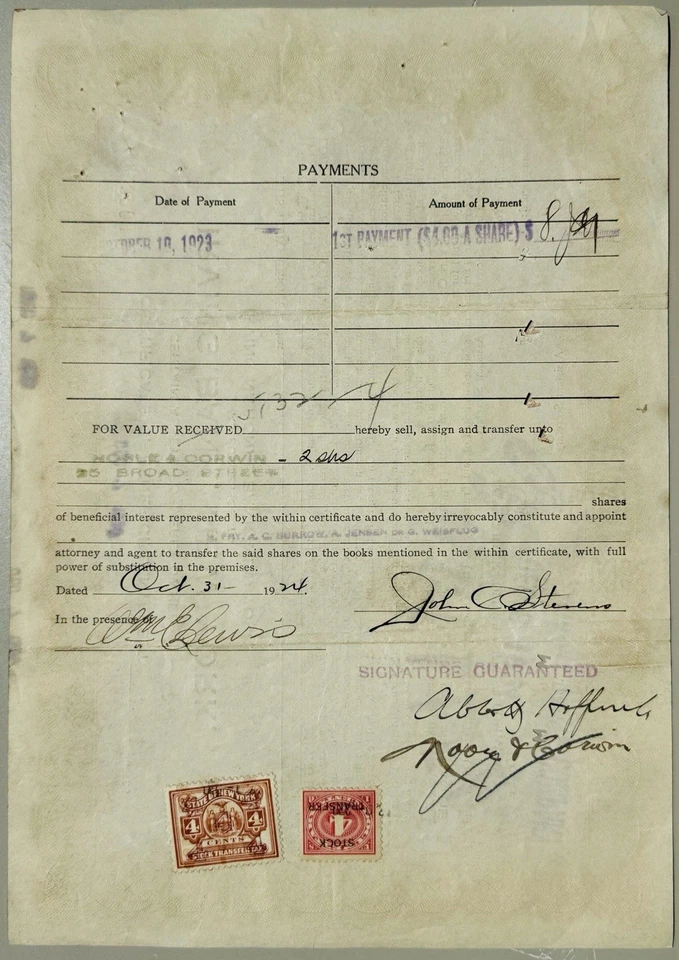 PAYMENTS
Date of Payment Amount of Payment
TOBER 10, 1923 1ST PAYMENT ($4.00 A SHARE) $ 8.
FOR VALUE RECEIVED hereby sell, assign and transfer unto
NOBLE & CORWIN - 2 shs
25 BROAD STREET
shares
of beneficial interest represented by the within certificate and do hereby irrevocably constitute and appoint
H. FRY, A. C. BURROW, A. JENSEN OR G. WEISFLUG
attorney and agent to transfer the said shares on the books mentioned in the within certificate, with full
power of substitution in the premises.
Dated Oct. 31 1924.
John C Stevens
In the presence of
Wm E Lewis
SIGNATURE GUARANTEED
Noble & Corwin
STATE OF NEW YORK
4 4
CENTS
STOCK TRANSFER TAX
STOCK
TRANSFER